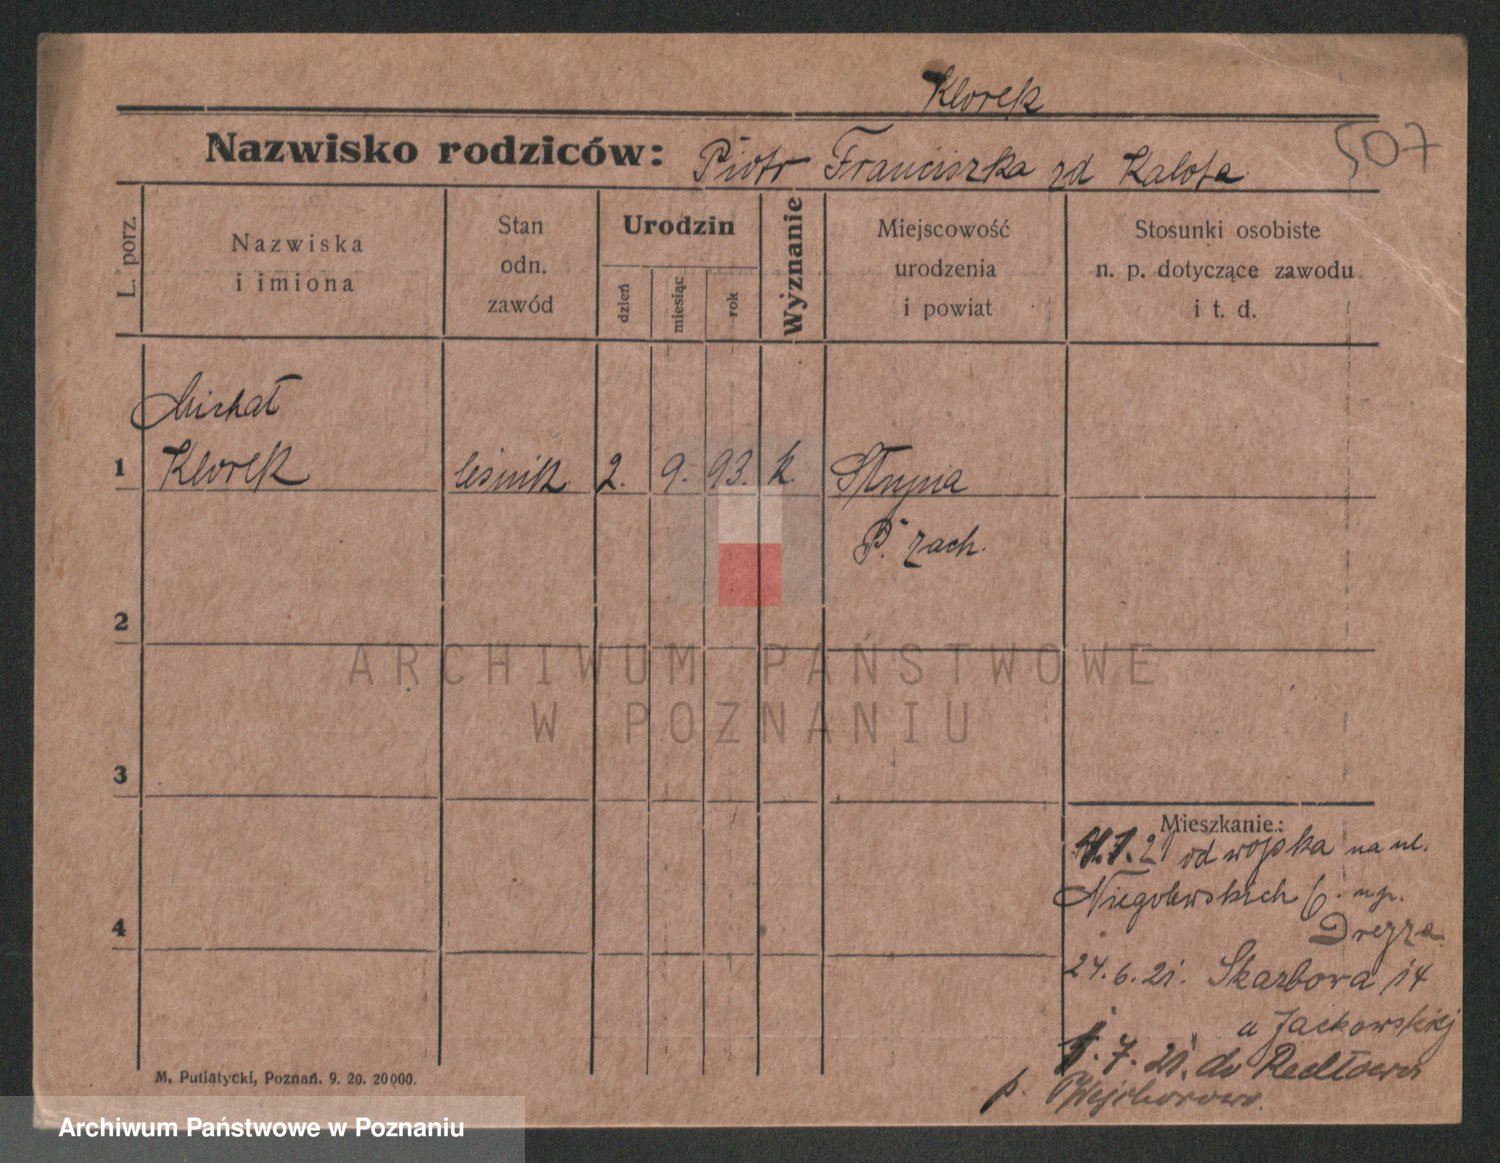 Klorek
507
Nazwisko rodziców: Piotr Franciszka zd Kalota
L. porz.
Nazwiska
i imiona
Stan
odn.
zawód
Urodzin
dzień
miesiąc
rok
Wyznanie
Miejscowość
urodzenia
i powiat
Stosunki osobiste
n. p. dotyczące zawodu
i t. d.
Michał
1 Klorek leśnik 2. 9. 93. k. Słupia
P. zach.
2
ARCHIWUM PAŃSTWOWE
W POZNANIU
3
Mieszkanie:
21 od wojska na ul.
4
Niegolewskich 6. np.
24.6.21. Skarbowa 14
u Jackowskiej
7. 21. do Redłowa
p. Wejcherowo.
M. Putiatycki, Poznań. 9. 20. 20000.
Archiwum Państwowe w Poznaniu